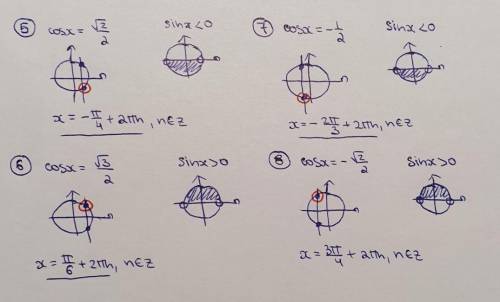 ⑤ cosx = √2/2 sinx<0
x = -π/4 + 2πn, n∈Z
⑦ cosx = -1/2 sinx<0
x = -2π/3 + 2πn, n∈Z
⑥ cosx = √3/2 sinx>0
x = π/6 + 2πn, n∈Z
⑧ cosx = -√2/2 sinx>0
x = 3π/4 + 2πn, n∈Z